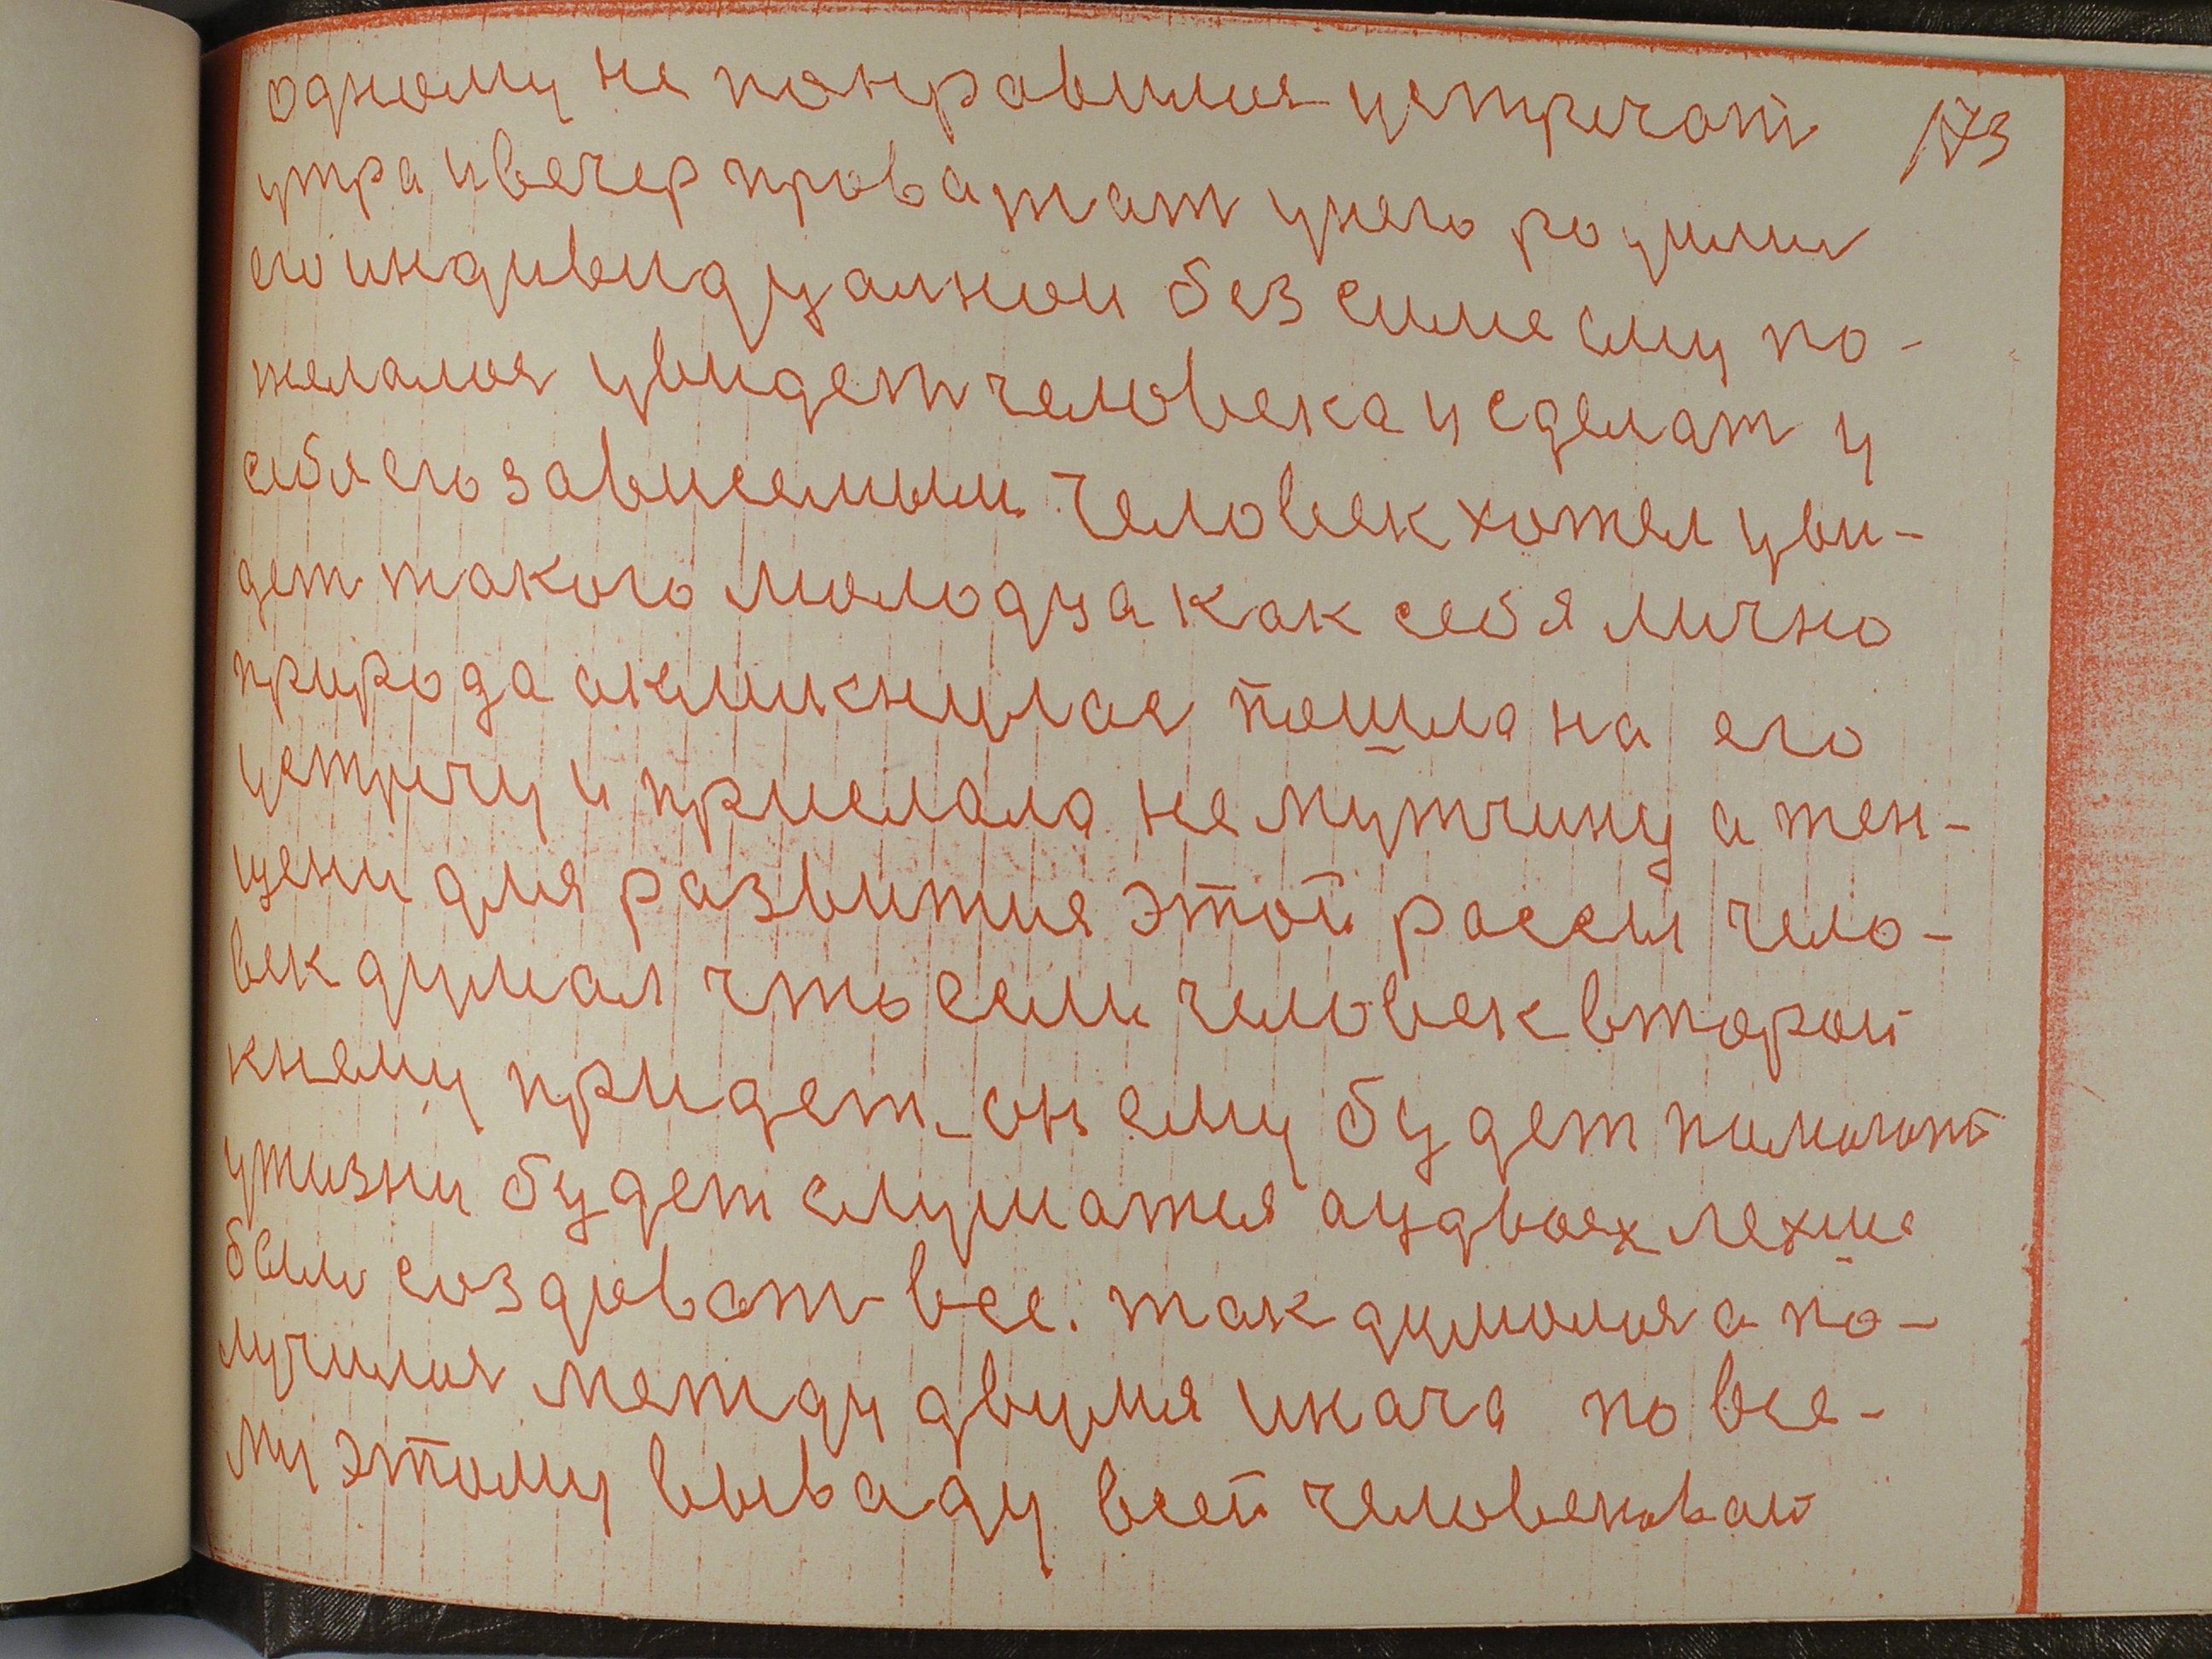 одному не понравилося устречат 173
утра и вечер проважат унего розуми
его индивидуалнои без силие ему по-
желалося увидет человека и сделат у
себя его зависемым человек хотел уви-
дет такого молодца как себя лично
природа акликнулас пошла на его
устречу и прислала не мужчину а жен-
щени для развития этой рассы чело-
век думал что если человек второй
кнему придет он ему будет помогат
ужизни будет слушатся аудвоех лехше
было создоват все. так думалося а по-
лучилося между двумя иначе по все-
му этому вываду всей человековай